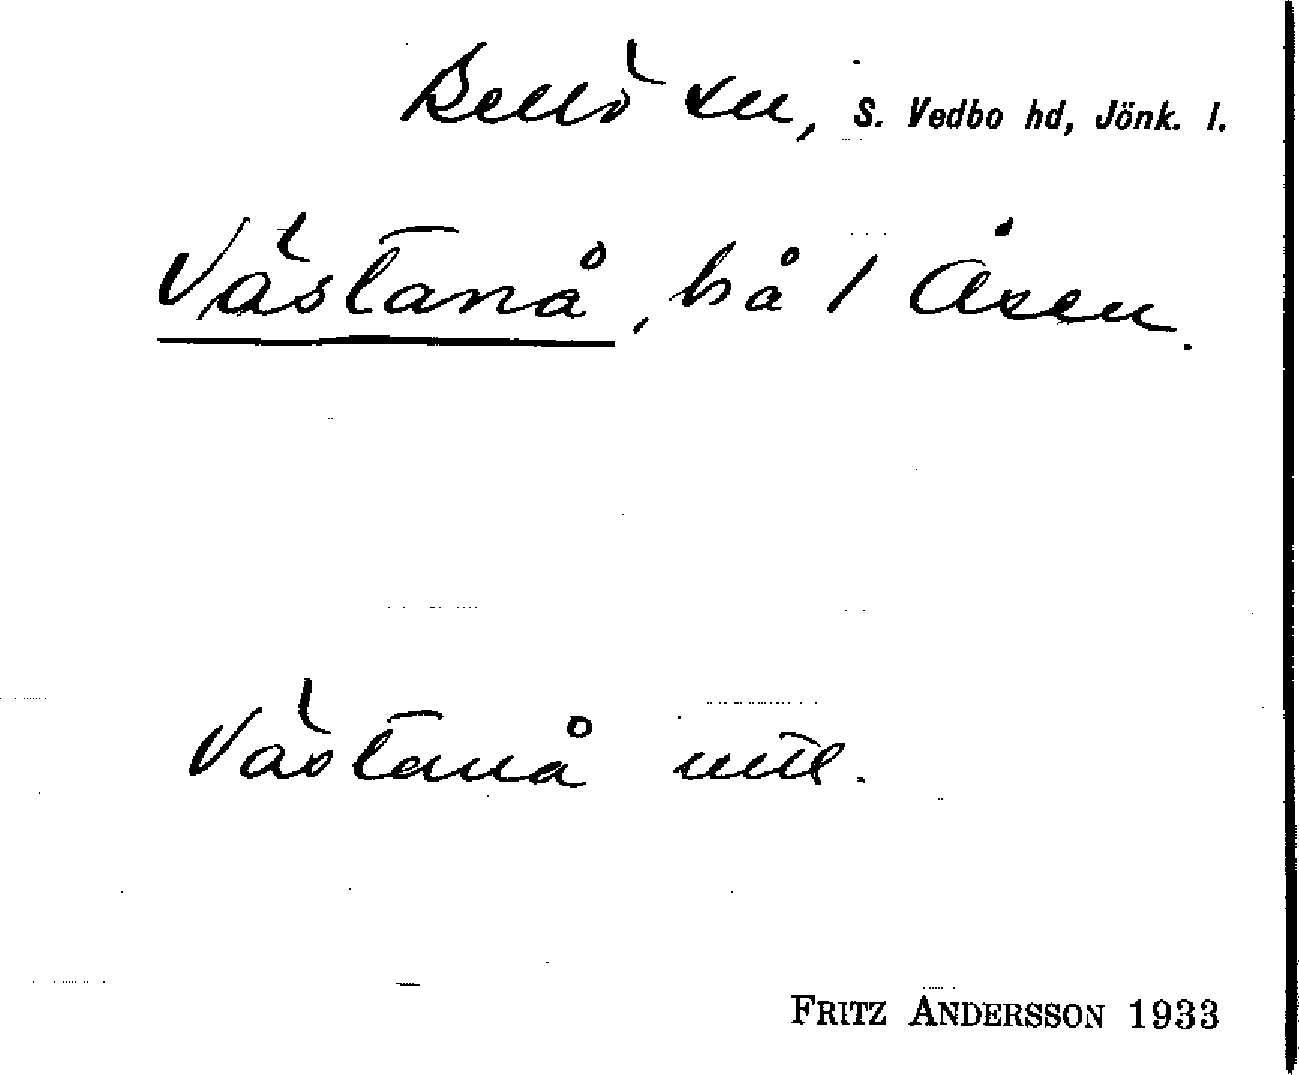 Bellö sn, S. Vedbo hd, Jönk. l.
Västanå, bå / Åsen.
Västanå uttl.
FRITZ ANDERSSON 1933